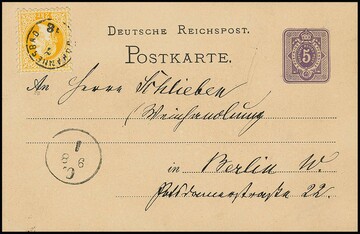 DEUTSCHE REICHSPOST.
POSTKARTE.
5
An Herrn Schlieben
Weinhandlung
in Berlin W.
Potsdamerstraße 22.
18
JOHANNESBAD
1
8